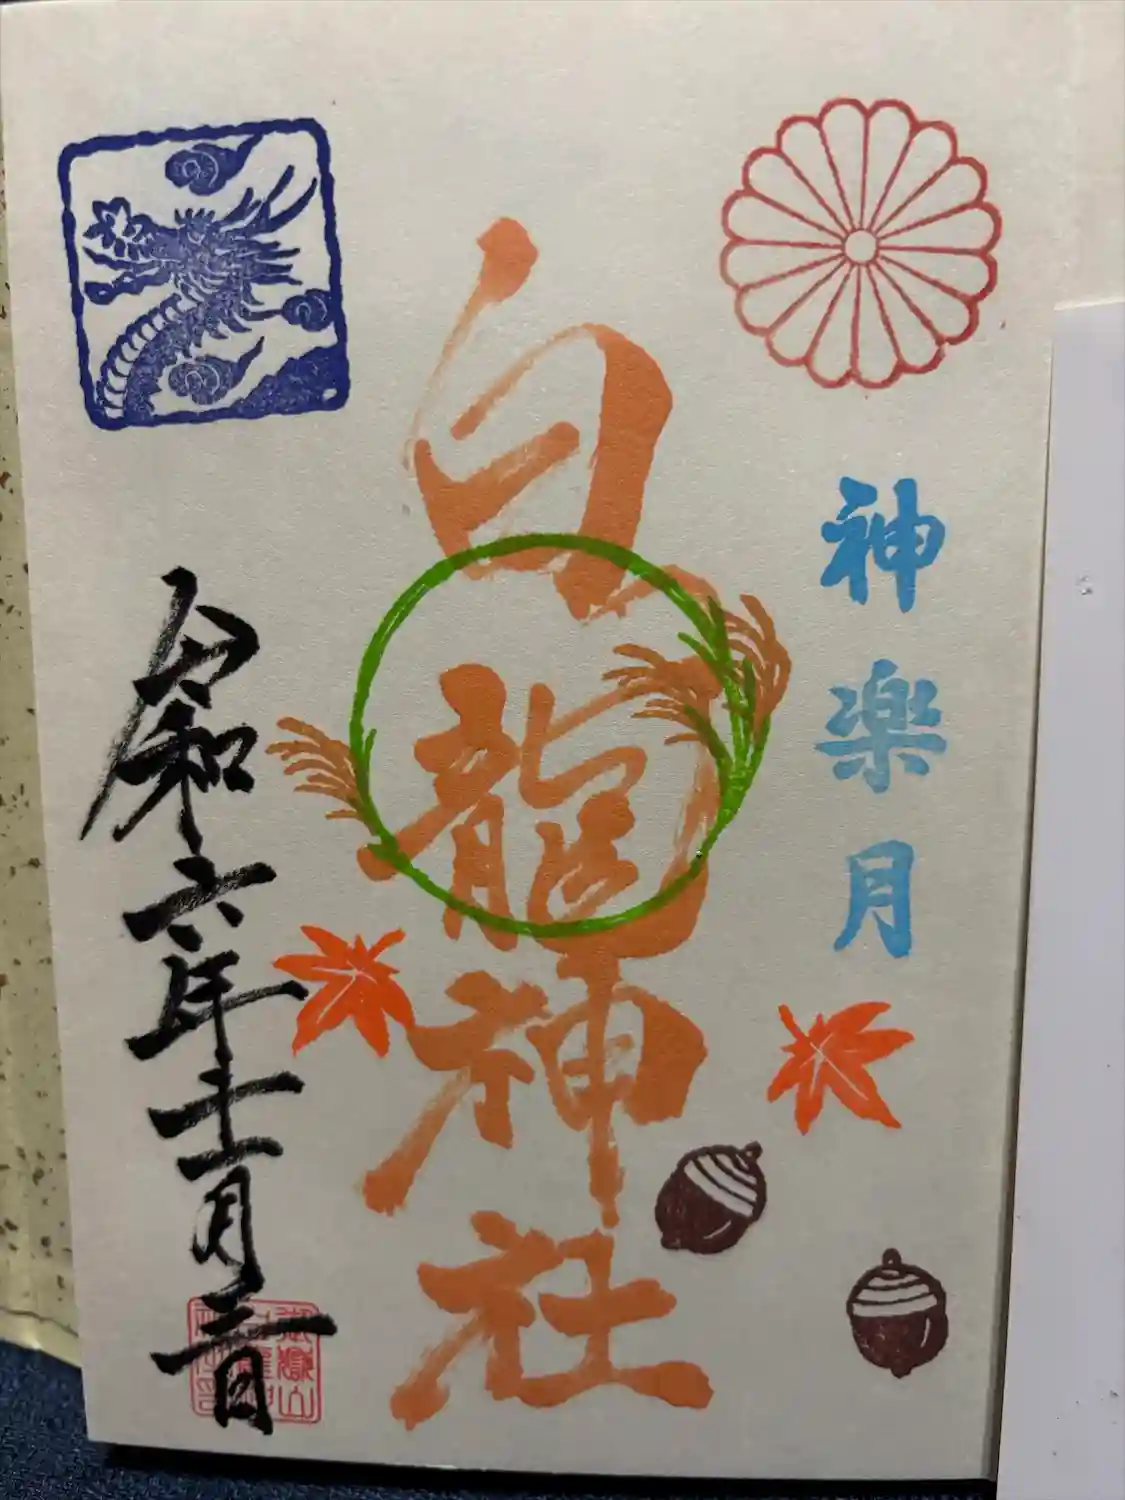 神楽月
白龍神社
令和六年十一月三日
御嶽山